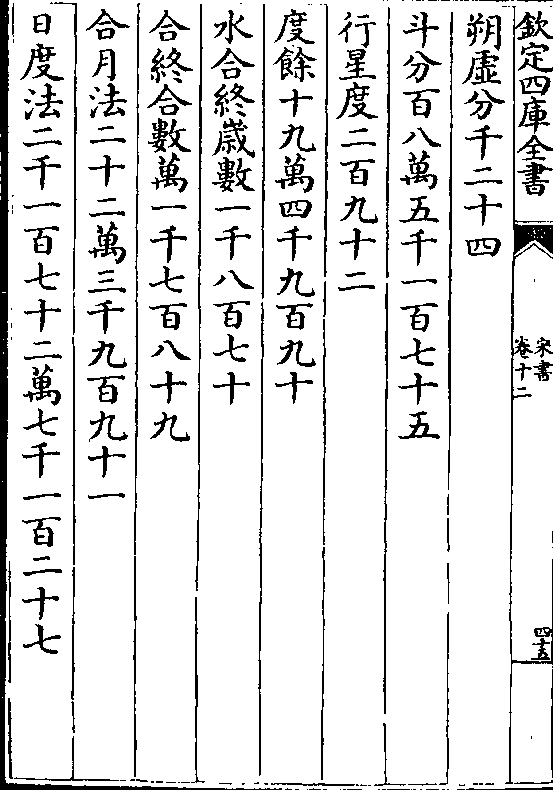 欽定四庫全書
宋書
卷十二
四十五
朔虛分千二十四
斗分百八萬五千一百七十五
行星度二百九十二
度餘十九萬四千九百九十
水合終歲數一千八百七十
合終合數萬一千七百八十九
合月法二十二萬三千九百九十一
日度法二千一百七十二萬七千一百二十七